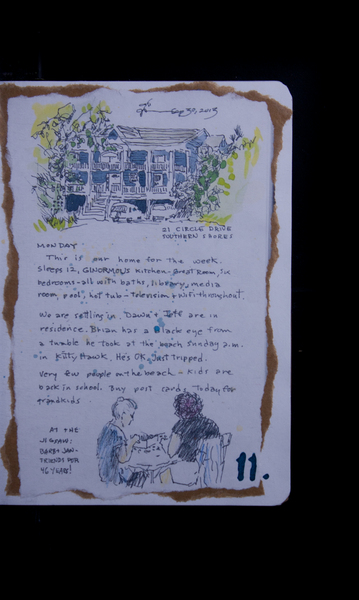 Sep 30, 2013
21 CIRCLE DRIVE
SOUTHERN SHORES
MONDAY
This is our home for the week.
Sleeps 12, GINORMOUS Kitchen-Great Room, six
bedrooms-all with baths, library, media
room, pool, hot tub - Television & Wifi throughout.
We are settling in. "Dawa" & are in
residence. Brian has a Black eye from
a tumble he took at the beach Sunday a.m.
in Kitty Hawk. He's OK, Just tripped.
Very few people on the beach - Kids are
back in school. Buy post cards Today for
grandkids
AT THE
JIGSAW:
BARB & JAN-
FRIENDS FOR
46 YEARS!
11.